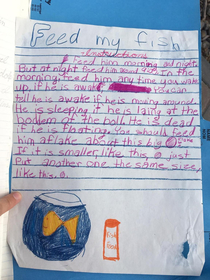 Feed my fish
Instructions
Feed him morning and night.
But at night feed him about 9:00. In the
morning feed him any time you wake
up, if he is awake. You can
tell he is awake if he is moving around.
He is sleeping if he is laing at the
bodlem of the bolt. He is dead
if he is floting. You should feed
him aflake about this big
If it is smaller, like this, just
Put another one the same size,
like this.
Fish
Food